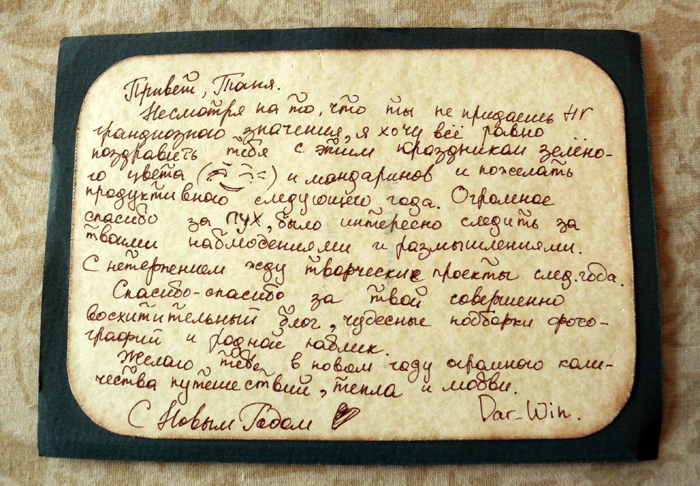 Привет, Таня.
Несмотря на то, что ты не придаёшь НГ
грандиозного значения, я хочу всё равно
поздравить тебя с этим праздником зелёно-
го цвета и мандаринов и пожелать
продуктивного следующего года. Огромное
спасибо за ПУХ, было интересно следить за
твоими наблюдениями и размышлениями.
С нетерпением жду творческие проекты след. года.
Спасибо-спасибо за твой совершенно
восхитительный блог, чудесные подборки фото-
графий и родной паблик.
Желаю тебе в новом году огромного коли-
чества путешествий, тепла и любви.
С Новым Годом
Dar-Win.